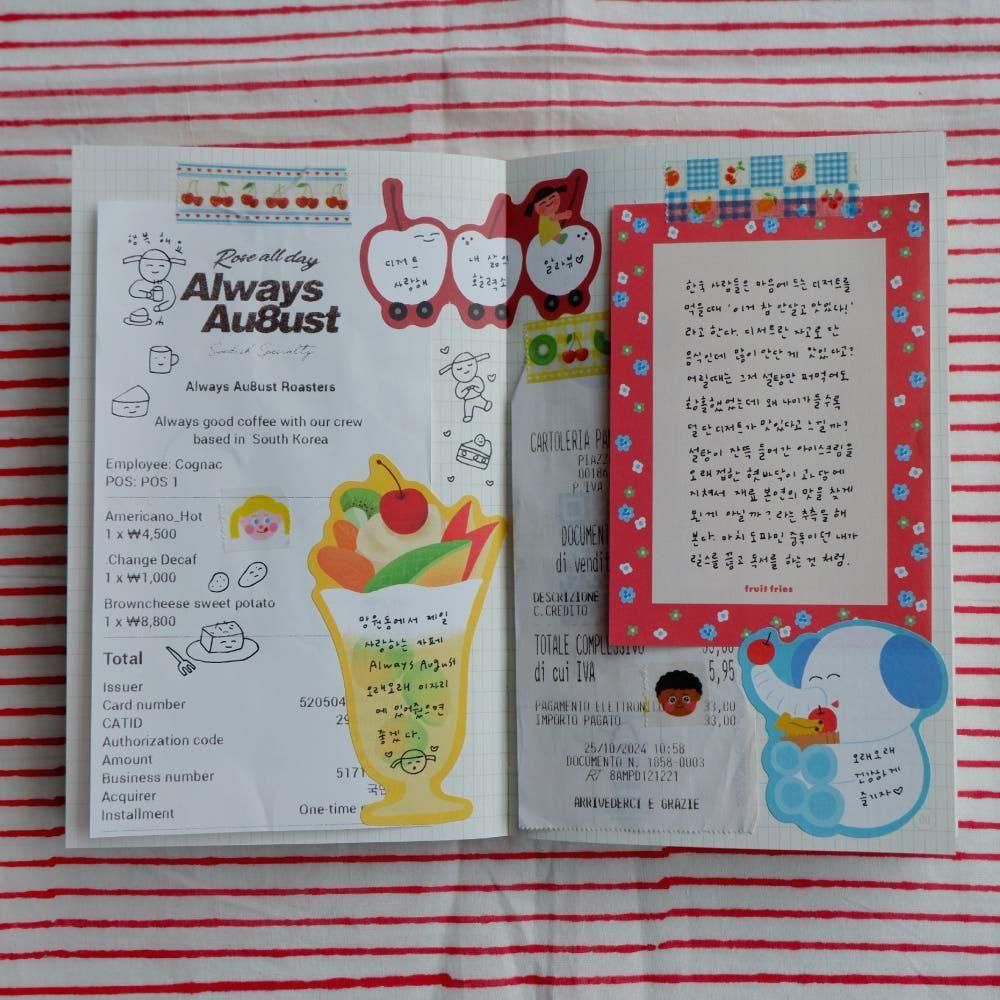 행복해
Rose all day
Always
Au8ust
Swedish Specialty
Always Au8ust Roasters
Always good coffee with our crew
based in South Korea
Employee: Cognac
POS: POS 1
Americano_Hot
1 x ₩4,500
.Change Decaf
1 x ₩1,000
Browncheese sweet potato
1 x ₩8,800
Total
Issuer
Card number 520504
CATID 29
Authorization code
Amount
Business number 5171
Acquirer 국민
Installment One-time
디저트
사랑해
내 삶의
활력소
알라뷰♡
망원동에서 제일
사랑하는 카페
Always August
오래오래 이자리
에 있어줬으면
좋겠다.
CARTOLERIA PA
PIAZZ
00186
P.IVA
DOCUMEN
di vendit
DESCRIZIONE
C.CREDITO
TOTALE COMPLESSIVO 33,00
di cui IVA 5,95
PAGAMENTO ELETTRONICO 33,00
IMPORTO PAGATO 33,00
25/10/2024 10:58
DOCUMENTO N. 1858-0003
RT 8AMPD121221
ARRIVEDERCI E GRAZIE
한국 사람들은 마음에 드는 디저트를
먹을때 '이거 참 안달고 맛있다!'
라고 한다. 디저트란 자고로 단
음식인데 많이 안단게 맛있다고?
어릴때는 그저 설탕만 퍼먹어도
황홀했었는데 왜 나이가 들수록
덜 단 디저트가 맛있다고 느낄까?
설탕이 잔뜩 들어간 아이스크림을
오래 접한 혓바닥이 과당에
지쳐서 재료 본연의 맛을 찾게
되는게 아닐까? 라는 추측을 해
본다. 마치 도파민 중독이던 내가
릴스를 끊고 독서를 하는 것 처럼.
fruit fries
오래오래
건강하게
즐기자♡